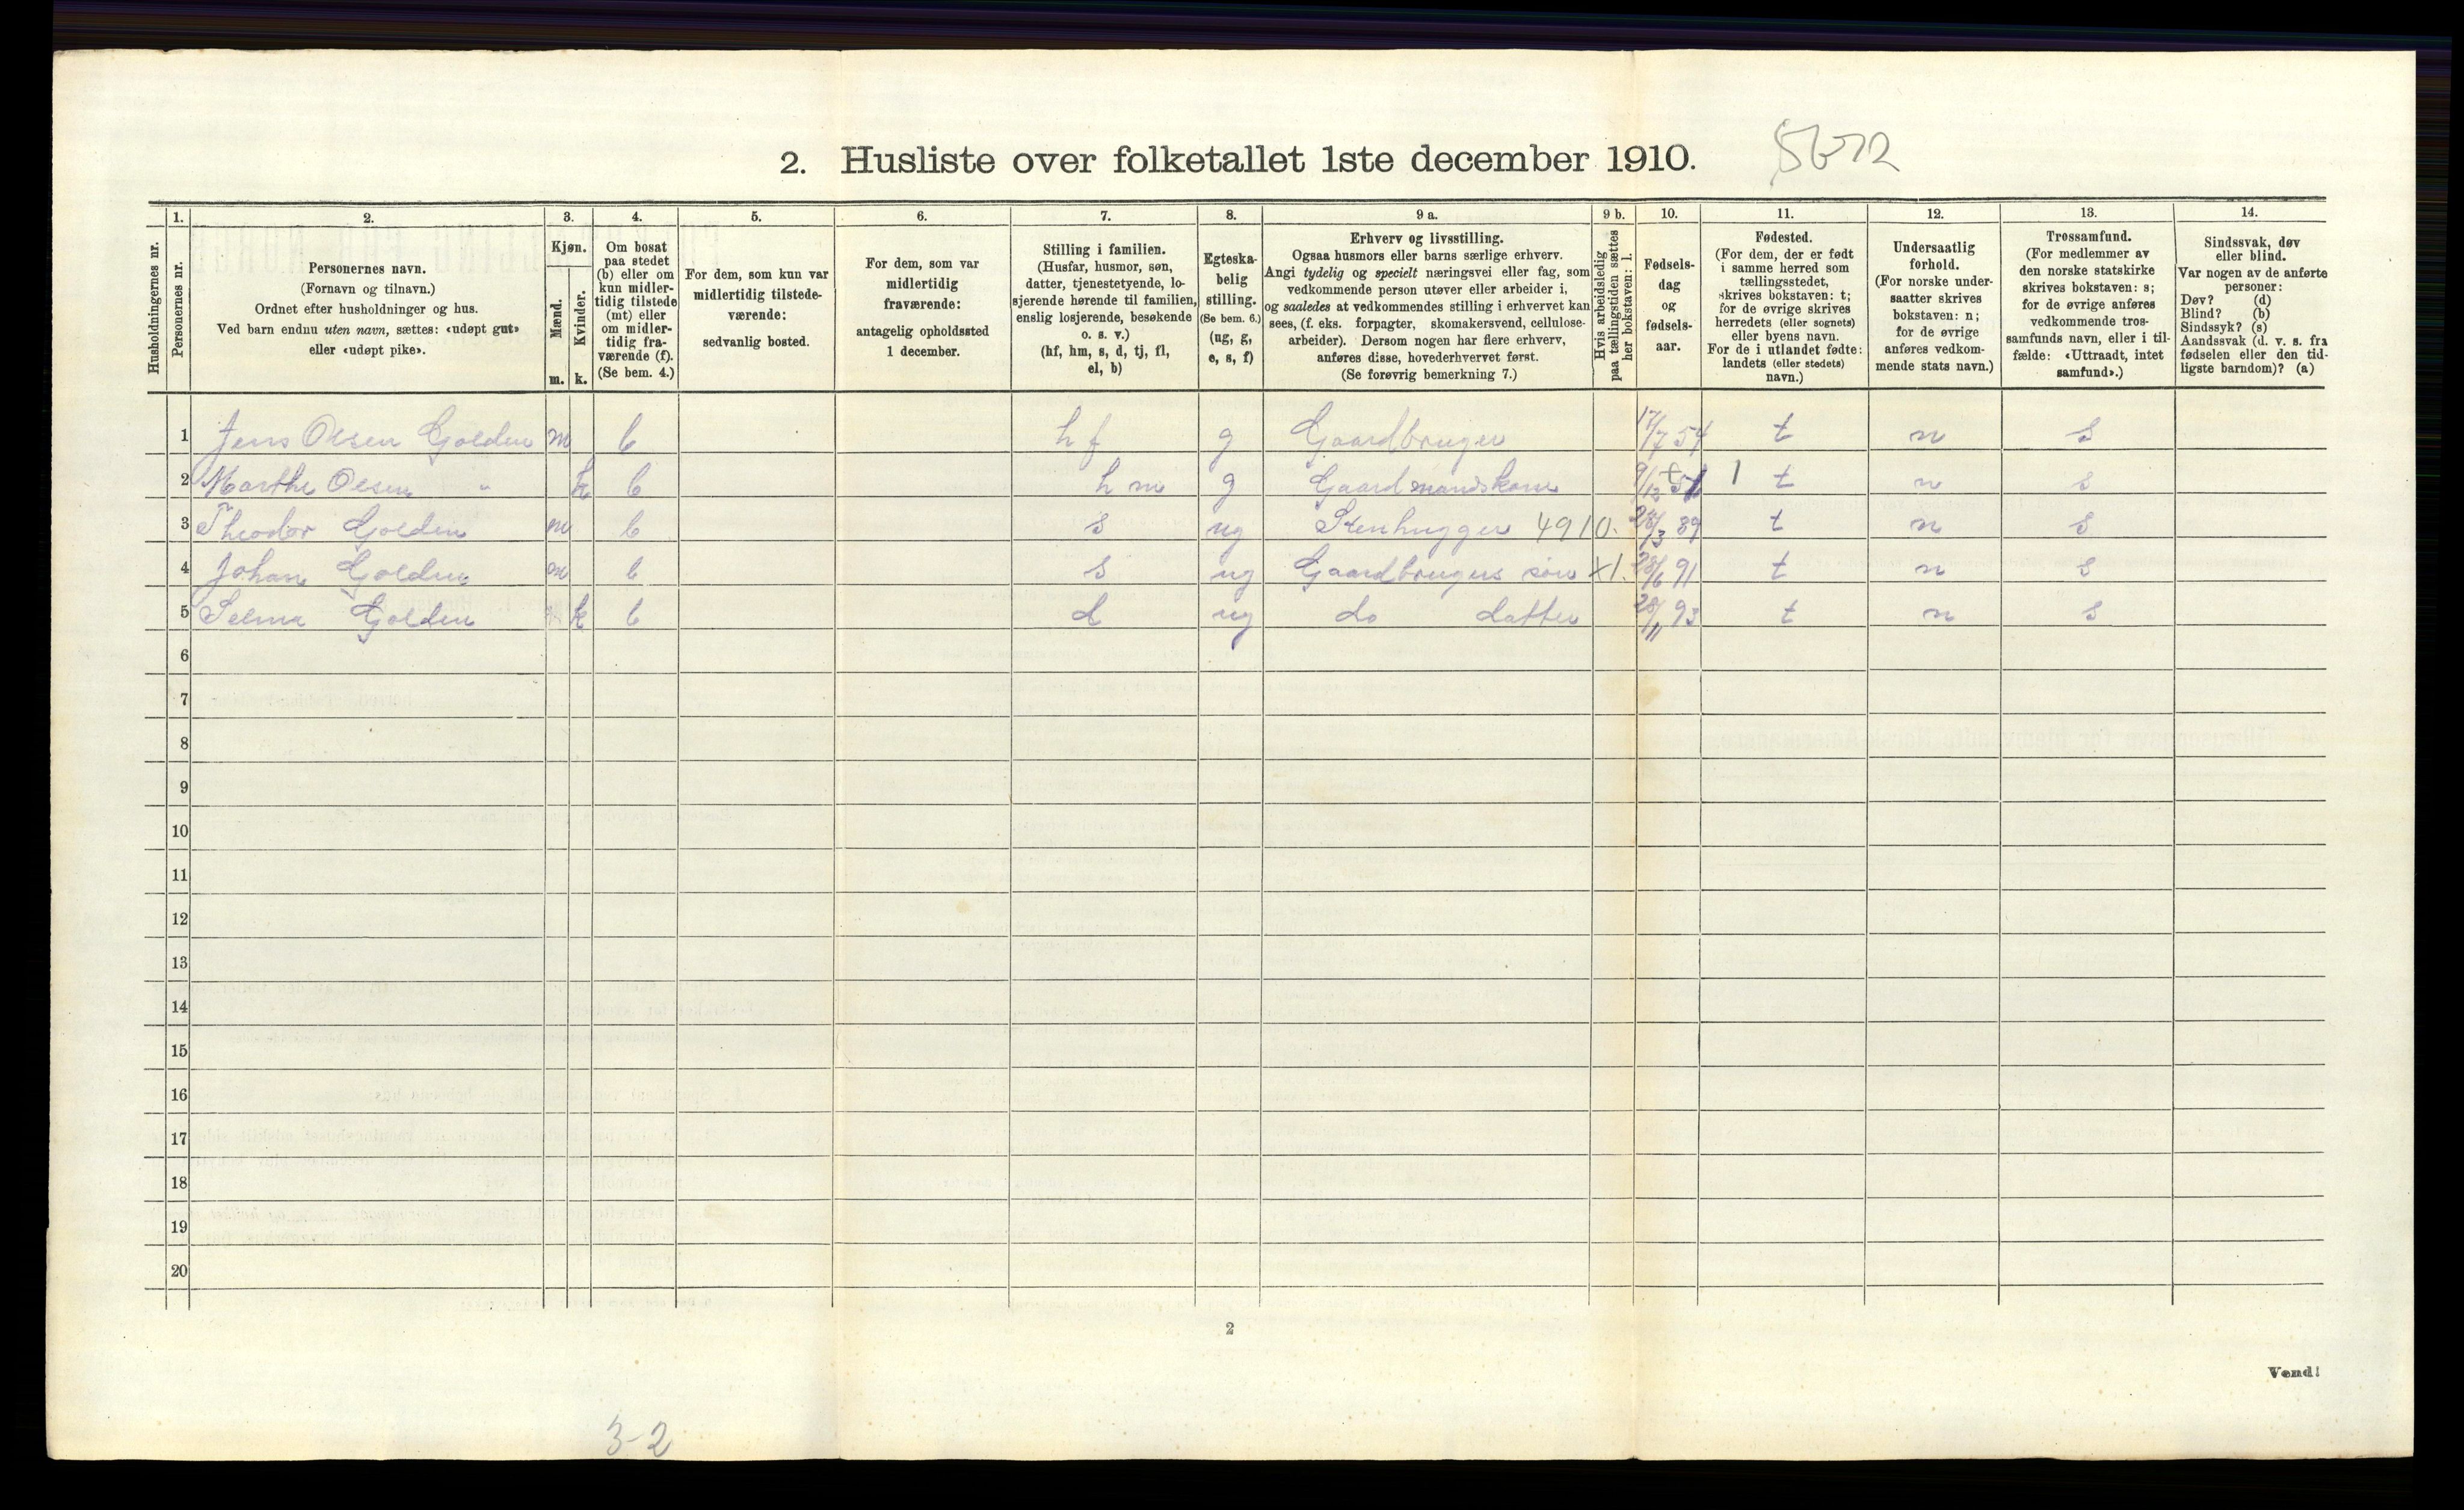 2. Husliste over folketallet 1ste december 1910.
Husholdningernes nr.
1. Personernes nr.
2. Personernes navn.
(Fornavn og tilnavn.)
Ordnet efter husholdninger og hus.
Ved barn endnu uten navn, sættes: «udøpt gut»
eller «udøpt pike».
3. Kjøn.
Mænd. m.
Kvinder. k.
4. Om bosat
paa stedet
(b) eller om
kun midler-
tidig tilstede
(mt) eller
om midler-
tidig fra-
værende (f).
(Se bem. 4.)
5. For dem, som kun var
midlertidig tilstede-
værende:
sedvanlig bosted.
6. For dem, som var
midlertidig
fraværende:
antagelig opholdssted
1 december.
7. Stilling i familien.
(Husfar, husmor, søn,
datter, tjenestetyende, lo-
sjerende hørende til familien,
enslig losjerende, besøkende
o. s. v.)
(hf, hm, s, d, tj, fl,
el, b)
8. Egteska-
belig
stilling.
(Se bem. 6.)
(ug, g,
e, s, f)
9 a. Erhverv og livsstilling.
Ogsaa husmors eller barns særlige erhverv.
Angi tydelig og specielt næringsvei eller fag, som
vedkommende person utøver eller arbeider i,
og saaledes at vedkommendes stilling i erhvervet kan
sees, (f. eks. forpagter, skomakersvend, cellulose-
arbeider). Dersom nogen har flere erhverv,
anføres disse, hovederhvervet først.
(Se forøvrig bemerkning 7.)
9 b. Hvis arbeidsledig
paa tællingstiden sættes
her bokstaven: l.
10. Fødsels-
dag
og
fødsels-
aar.
11. Fødested.
(For dem, der er født
i samme herred som
tællingsstedet,
skrives bokstaven: t;
for de øvrige skrives
herredets (eller sognets)
eller byens navn.
For de i utlandet fødte:
landets (eller stedets)
navn.)
12. Undersaatlig
forhold.
(For norske under-
saatter skrives
bokstaven: n;
for de øvrige
anføres vedkom-
mende stats navn.)
13. Trossamfund.
(For medlemmer av
den norske statskirke
skrives bokstaven: s;
for de øvrige anføres
vedkommende tros-
samfunds navn, eller i til-
fælde: «Uttraadt, intet
samfund».)
14. Sindssvak, døv
eller blind.
Var nogen av de anførte
personer:
Døv? (d)
Blind? (b)
Sindssyk? (s)
Aandssvak (d. v. s. fra
fødselen eller den tid-
ligste barndom)? (a)
1 Jens Olsen Golden m b hf g Gaardbruger 17/7 54 t n s
2 Marthe Olsen " k b hm g Gaardmandskone 9/12 51 1 t n s
3 Theodor Golden m b s ug Stenhugger 4910. 24/3 89 t n s
4 Johan Golden m b s ug Gaardbrugers søn x1. 28/6 91 t n s
5 Selma Golden k b d ug do datter 28/11 93 t n s
6
7
8
9
10
11
12
13
14
15
16
17
18
19
20
2
Vend!
3-2